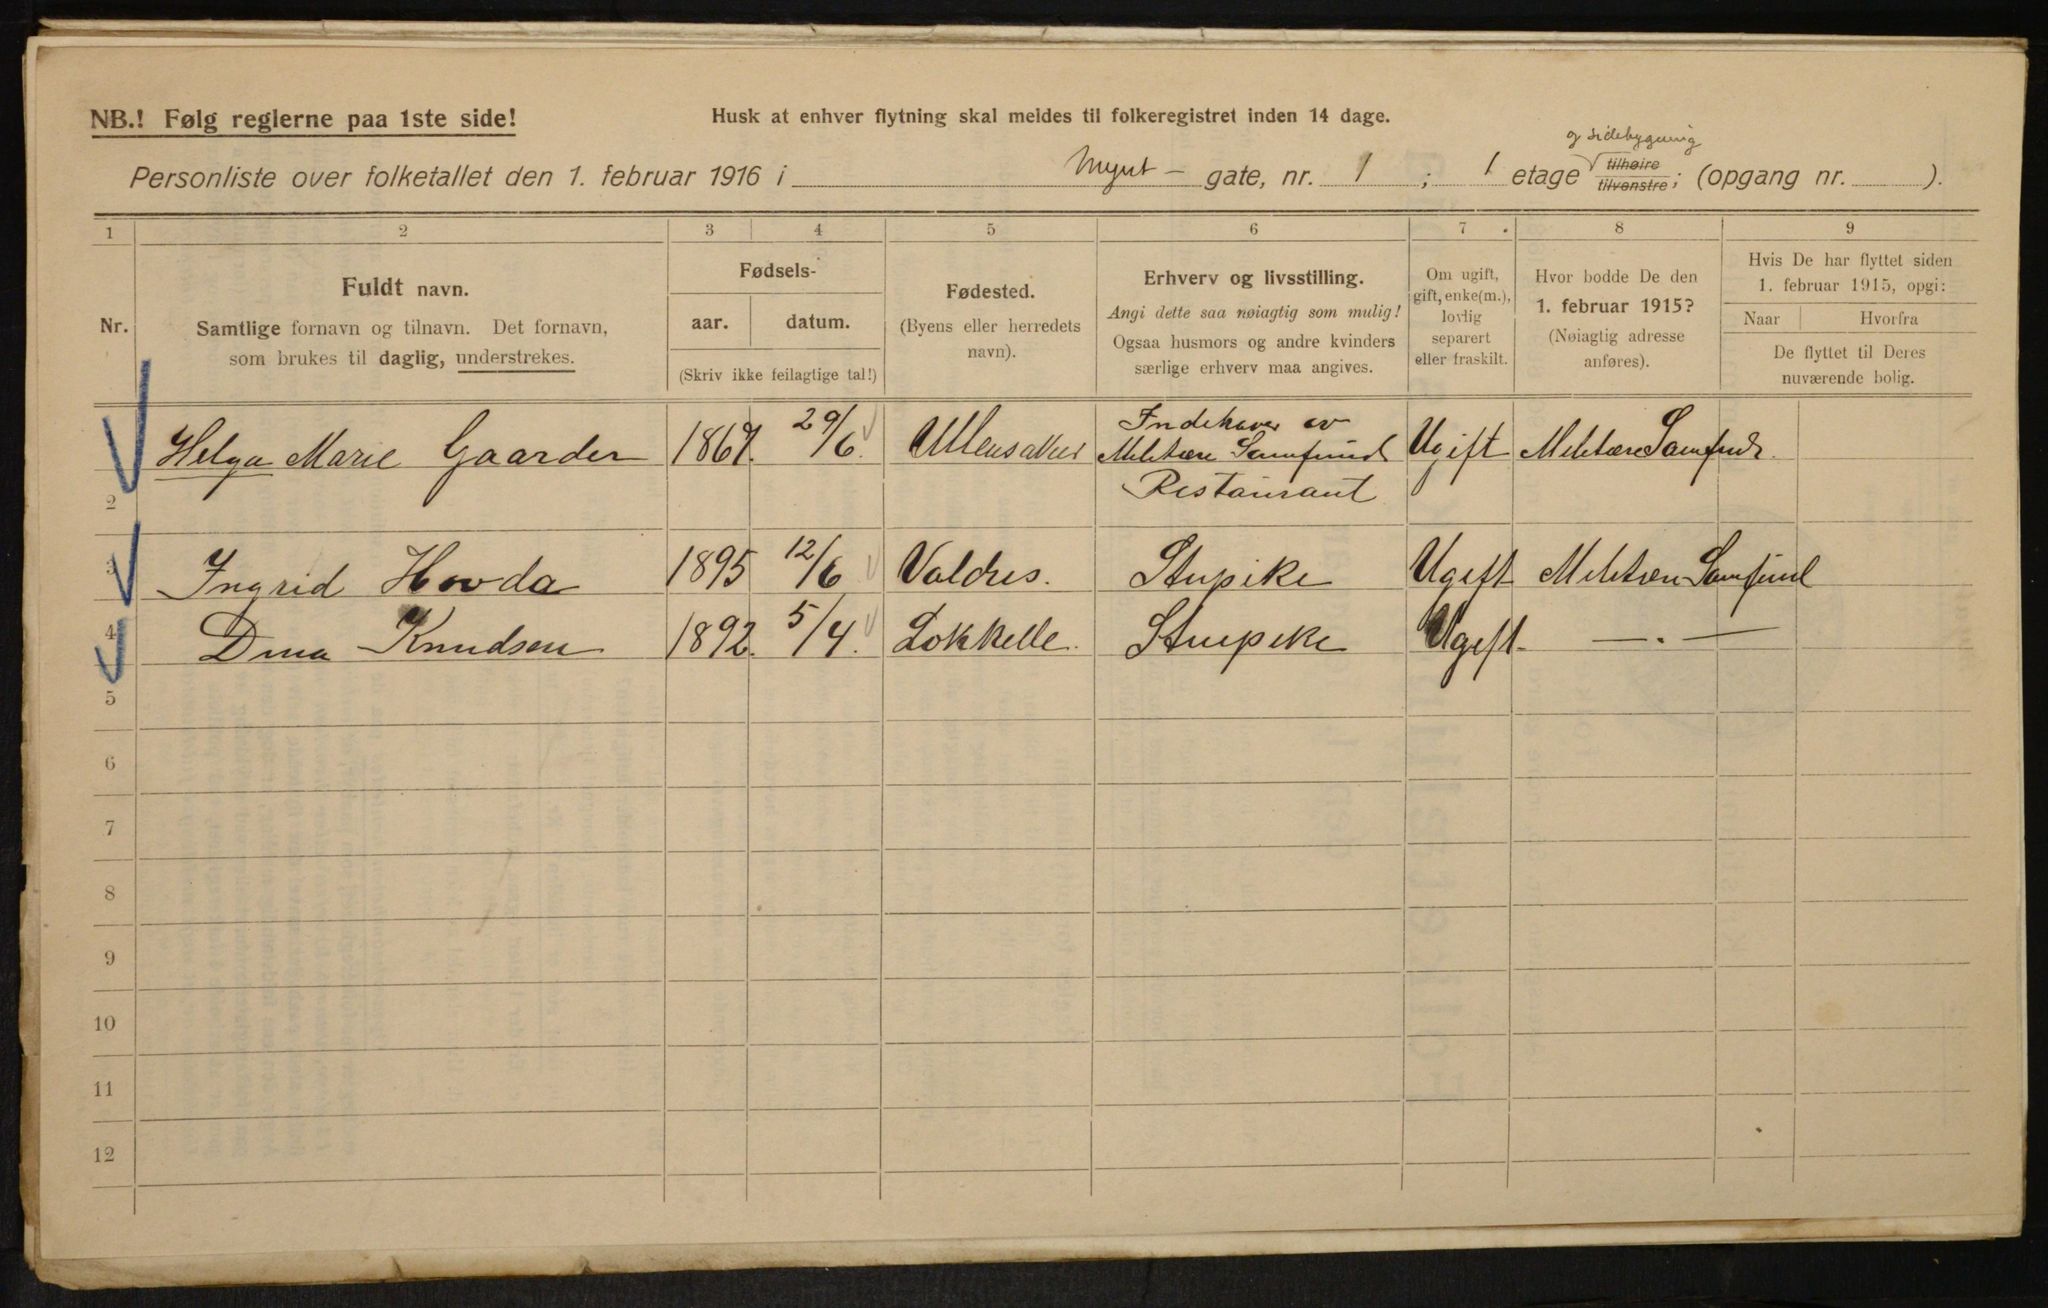 NB.! Følg reglerne paa 1ste side!
Husk at enhver flytning skal meldes til folkeregistret inden 14 dage.
og sidebygning
Personliste over folketallet den 1. februar 1916 i Mynt- gate, nr. 1; 1 etage tilhøire tilvenstre; (opgang nr. ).
1 2 3 4 5 6 7 8 9
Nr.
Fuldt navn.
Samtlige fornavn og tilnavn. Det fornavn,
som brukes til daglig, understrekes.
Fødsels-
aar. datum.
(Skriv ikke feilagtige tal!)
Fødested.
(Byens eller herredets
navn).
Erhverv og livsstilling.
Angi dette saa nøiagtig som mulig!
Ogsaa husmors og andre kvinders
særlige erhverv maa angives.
Om ugift,
gift, enke(m.),
lovlig
separert
eller fraskilt.
Hvor bodde De den
1. februar 1915?
(Nøiagtig adresse
anføres).
Hvis De har flyttet siden
1. februar 1915, opgi:
Naar Hvorfra
De flyttet til Deres
nuværende bolig.
Helga Marie Gaarder 1867. 29/6. Ullensaker Indehaver av Militære Samfund Restaurant Ugift Militære Samfund.
2
3 Ingrid Hovda 1895 12/6 Valdres. Stupike Ugift Militære Samfund
4 Dina Knudsen 1892. 5/4. Løkkelle. Stupike Ugift. —.—
5
6
7
8
9
10
11
12